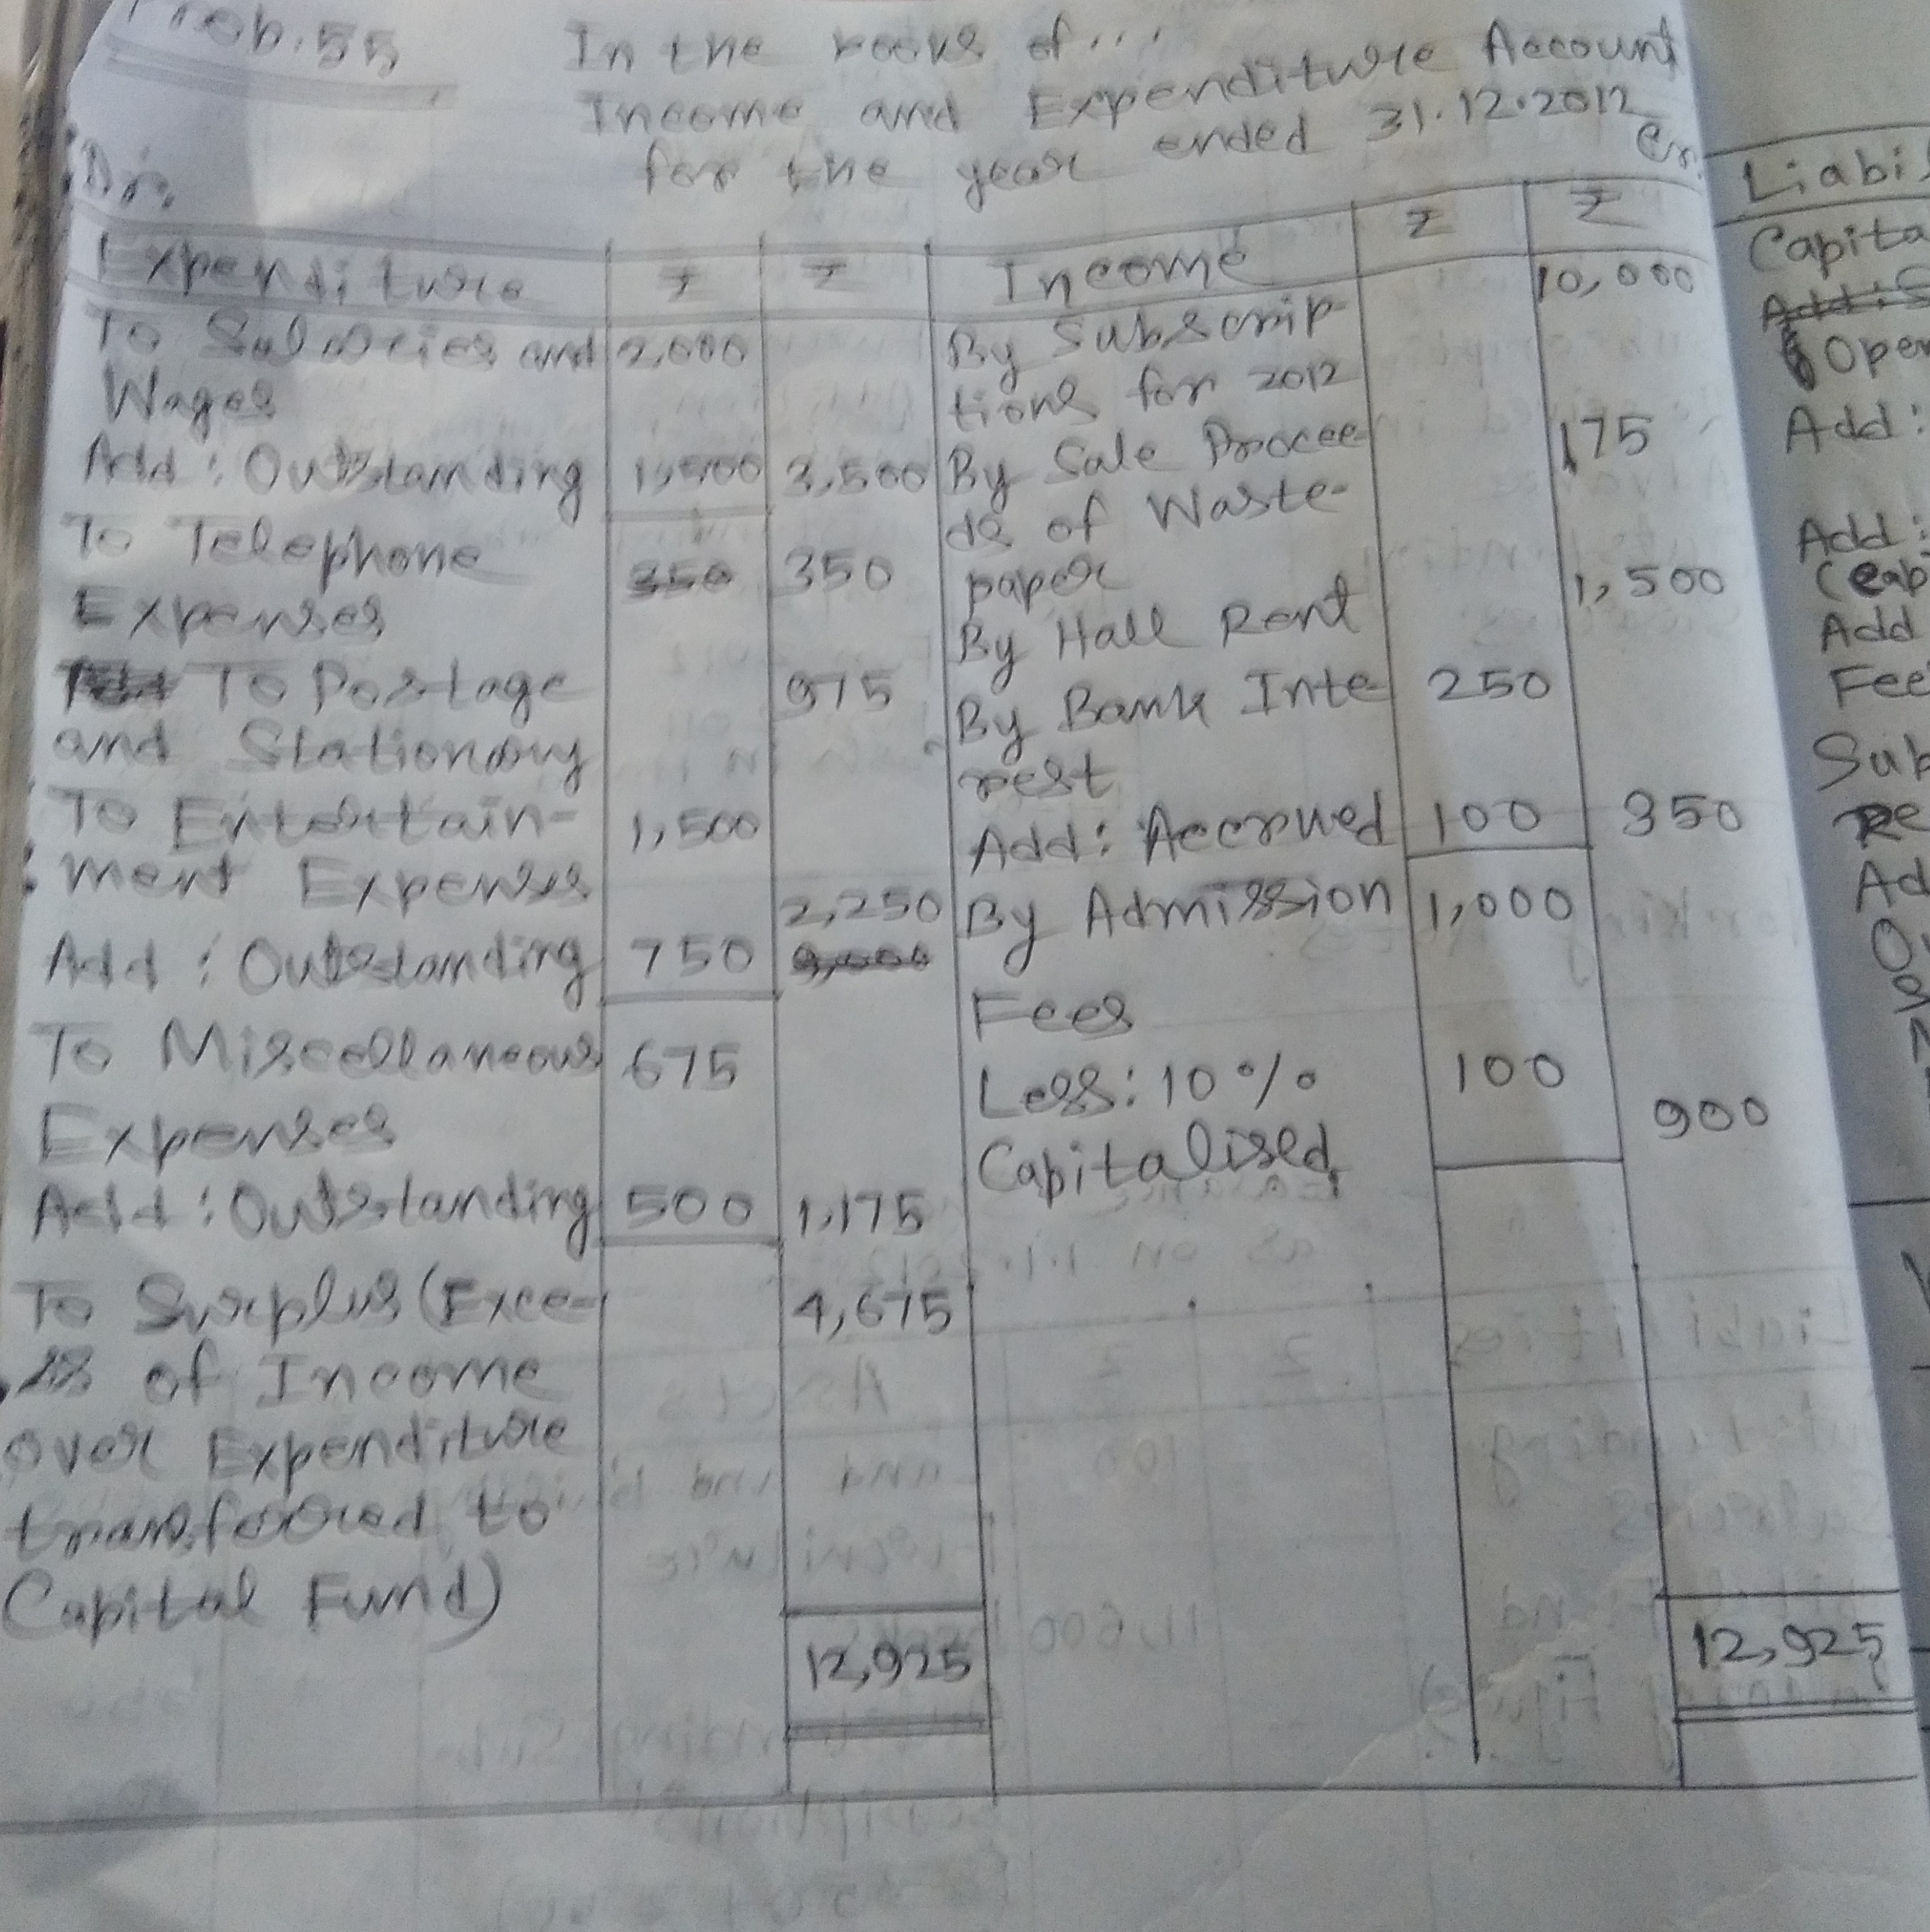 Prob. 55
In the books of...
Income and Expenditure Account
for the year ended 31.12.2012
Dr. Cr.
Expenditure ₹ ₹ Income ₹ ₹
To Salaries and 2,000 By Subscrip- 10,000
Wages tions for 2012
Add: Outstanding 1,500 3,500 By Sale Procee- 175
ds of Waste-
To Telephone 350 350 paper
Expenses By Hall Rent 1,500
To Postage 975 By Bank Inte 250
and Stationary rest
To Entertain- 1,500 Add: Accrued 100 350
ment Expenses
2,250 By Admission 1,000
Add: Outstanding 750
Fees
To Miscellaneous 675 Less: 10% 100
Expenses 900
Capitalised
Add: Outstanding 500 1,175
To Surplus (Exce- 4,675
ss of Income
over Expenditure
transferred to
Capital Fund)
12,925 12,925
Liabil
Capita
Open
Add:
Add:
(cap
Add
Fee
Sub
Re
Ad